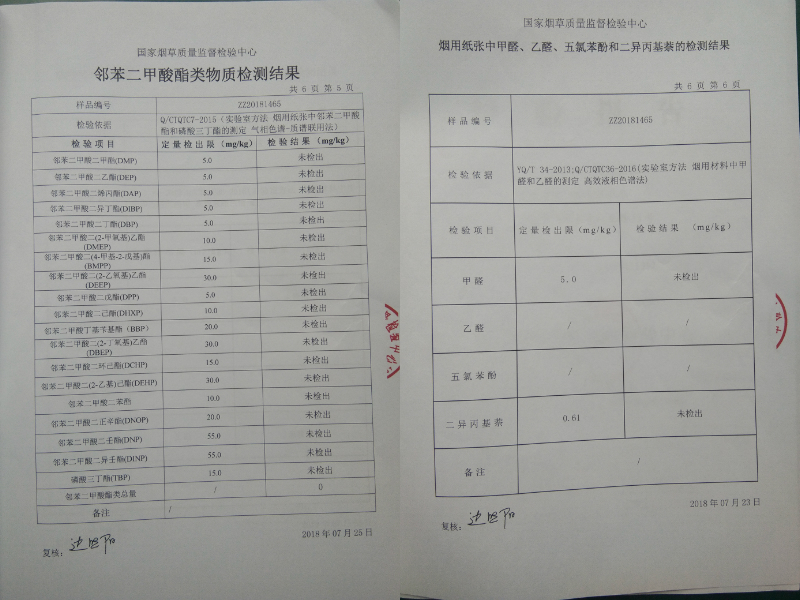 国家烟草质量监督检验中心
邻苯二甲酸酯类物质检测结果
共 6 页 第 5 页
样品编号 ZZ20181465
检验依据 Q/CTQTC7-2015（实验室方法 烟用纸张中邻苯二甲酸
酯和磷酸三丁酯的测定 气相色谱-质谱联用法）
检 验 项 目 定 量 检 出 限（mg/kg） 检 验 结 果（mg/kg）
邻苯二甲酸二甲酯(DMP) 5.0 未检出
邻苯二甲酸二乙酯(DEP) 5.0 未检出
邻苯二甲酸二烯丙酯(DAP) 5.0 未检出
邻苯二甲酸二异丁酯(DIBP) 5.0 未检出
邻苯二甲酸二丁酯(DBP) 5.0 未检出
邻苯二甲酸二(2-甲氧基)乙酯
(DMEP) 10.0 未检出
邻苯二甲酸二(4-甲基-2-戊基)酯
(BMPP) 15.0 未检出
邻苯二甲酸二(2-乙氧基)乙酯
(DEEP) 30.0 未检出
邻苯二甲酸二戊酯(DPP) 5.0 未检出
邻苯二甲酸二己酯(DHXP) 10.0 未检出
邻苯二甲酸丁基苄基酯（BBP） 20.0 未检出
邻苯二甲酸二(2-丁氧基)乙酯
(DBEP) 30.0 未检出
邻苯二甲酸二环己酯(DCHP) 15.0 未检出
邻苯二甲酸二(2-乙基)己酯(DEHP) 30.0 未检出
邻苯二甲酸二苯酯 10.0 未检出
邻苯二甲酸二正辛酯(DNOP) 20.0 未检出
邻苯二甲酸二壬酯(DNP) 55.0 未检出
邻苯二甲酸二异壬酯(DINP) 55.0 未检出
磷酸三丁酯(TBP) 15.0 未检出
邻苯二甲酸酯类总量 / 0
备注 /
2018 年 07 月 25 日
复核：
国家烟草质量监督检验中心
烟用纸张中甲醛、乙醛、五氯苯酚和二异丙基萘的检测结果
共 6 页 第 6 页
样 品 编 号 ZZ20181465
检 验 依 据 YQ/T 34-2013;Q/CTQTC36-2016(实验室方法 烟用材料中甲
醛和乙醛的测定 高效液相色谱法)
检 验 项 目 定 量 检 出 限(mg/kg) 检 验 结 果 （mg/kg）
甲 醛 5.0 未检出
乙 醛 / /
五 氯 苯 酚 / /
二 异 丙 基 萘 0.61 未检出
备 注 /
2018 年 07 月 23 日
复核：